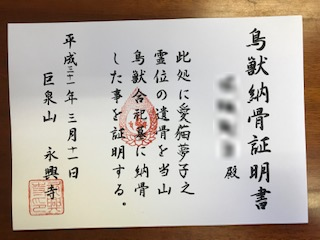 鳥獣納骨証明書
殿
此処に愛猫夢子之
霊位の遺骨を当山
鳥獣合祀墓に納骨
した事を証明する。
平成三十一年三月十一日
巨泉山 永興寺